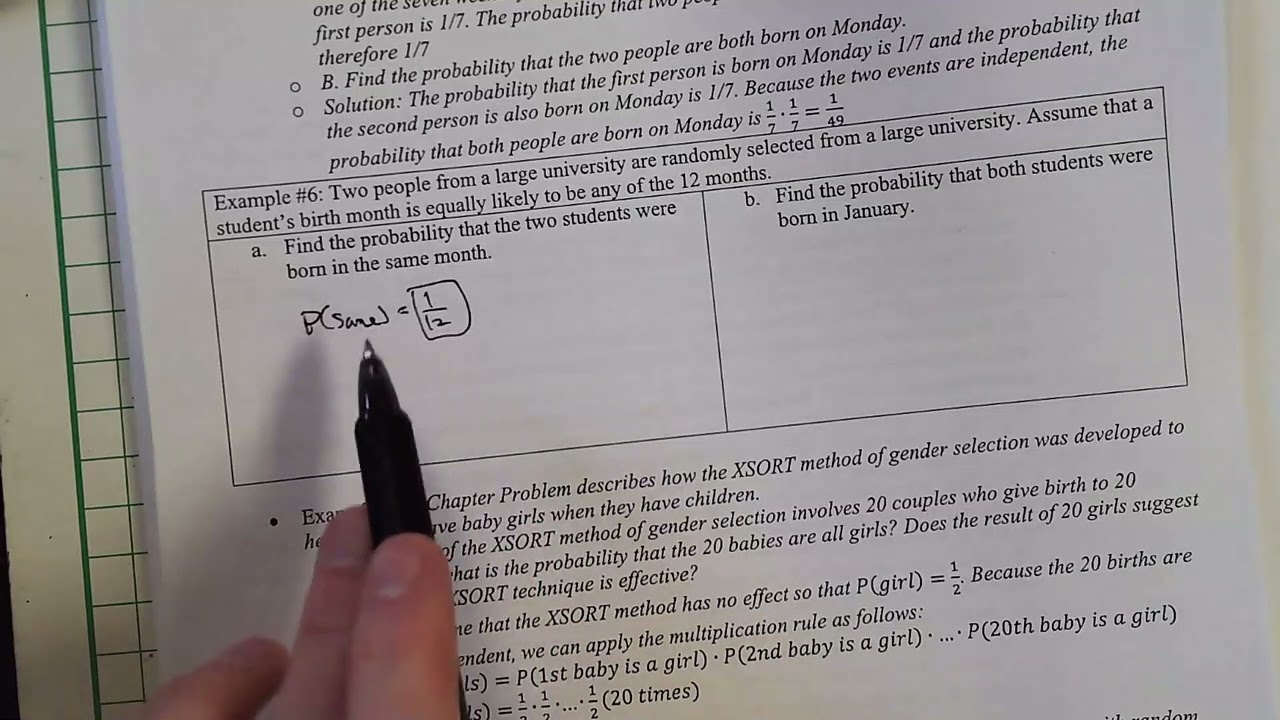 one of the seven
first person is 1/7. The probability that two
therefore 1/7
o B. Find the probability that the two people are both born on Monday.
o Solution: The probability that the first person is born on Monday is 1/7 and the probability that
the second person is also born on Monday is 1/7. Because the two events are independent, the
probability that both people are born on Monday is 1/7 · 1/7 = 1/49
Example #6: Two people from a large university are randomly selected from a large university. Assume that a
student's birth month is equally likely to be any of the 12 months.
a. Find the probability that the two students were
born in the same month.
P(same) = 1/12
b. Find the probability that both students were
born in January.
• Chapter Problem describes how the XSORT method of gender selection was developed to
baby girls when they have children.
of the XSORT method of gender selection involves 20 couples who give birth to 20
hat is the probability that the 20 babies are all girls? Does the result of 20 girls suggest
XSORT technique is effective?
that the XSORT method has no effect so that P(girl) = 1/2. Because the 20 births are
endent, we can apply the multiplication rule as follows:
ls) = P(1st baby is a girl) · P(2nd baby is a girl) · ... · P(20th baby is a girl)
s) = 1/2 · 1/2 · ... · 1/2 (20 times)
random